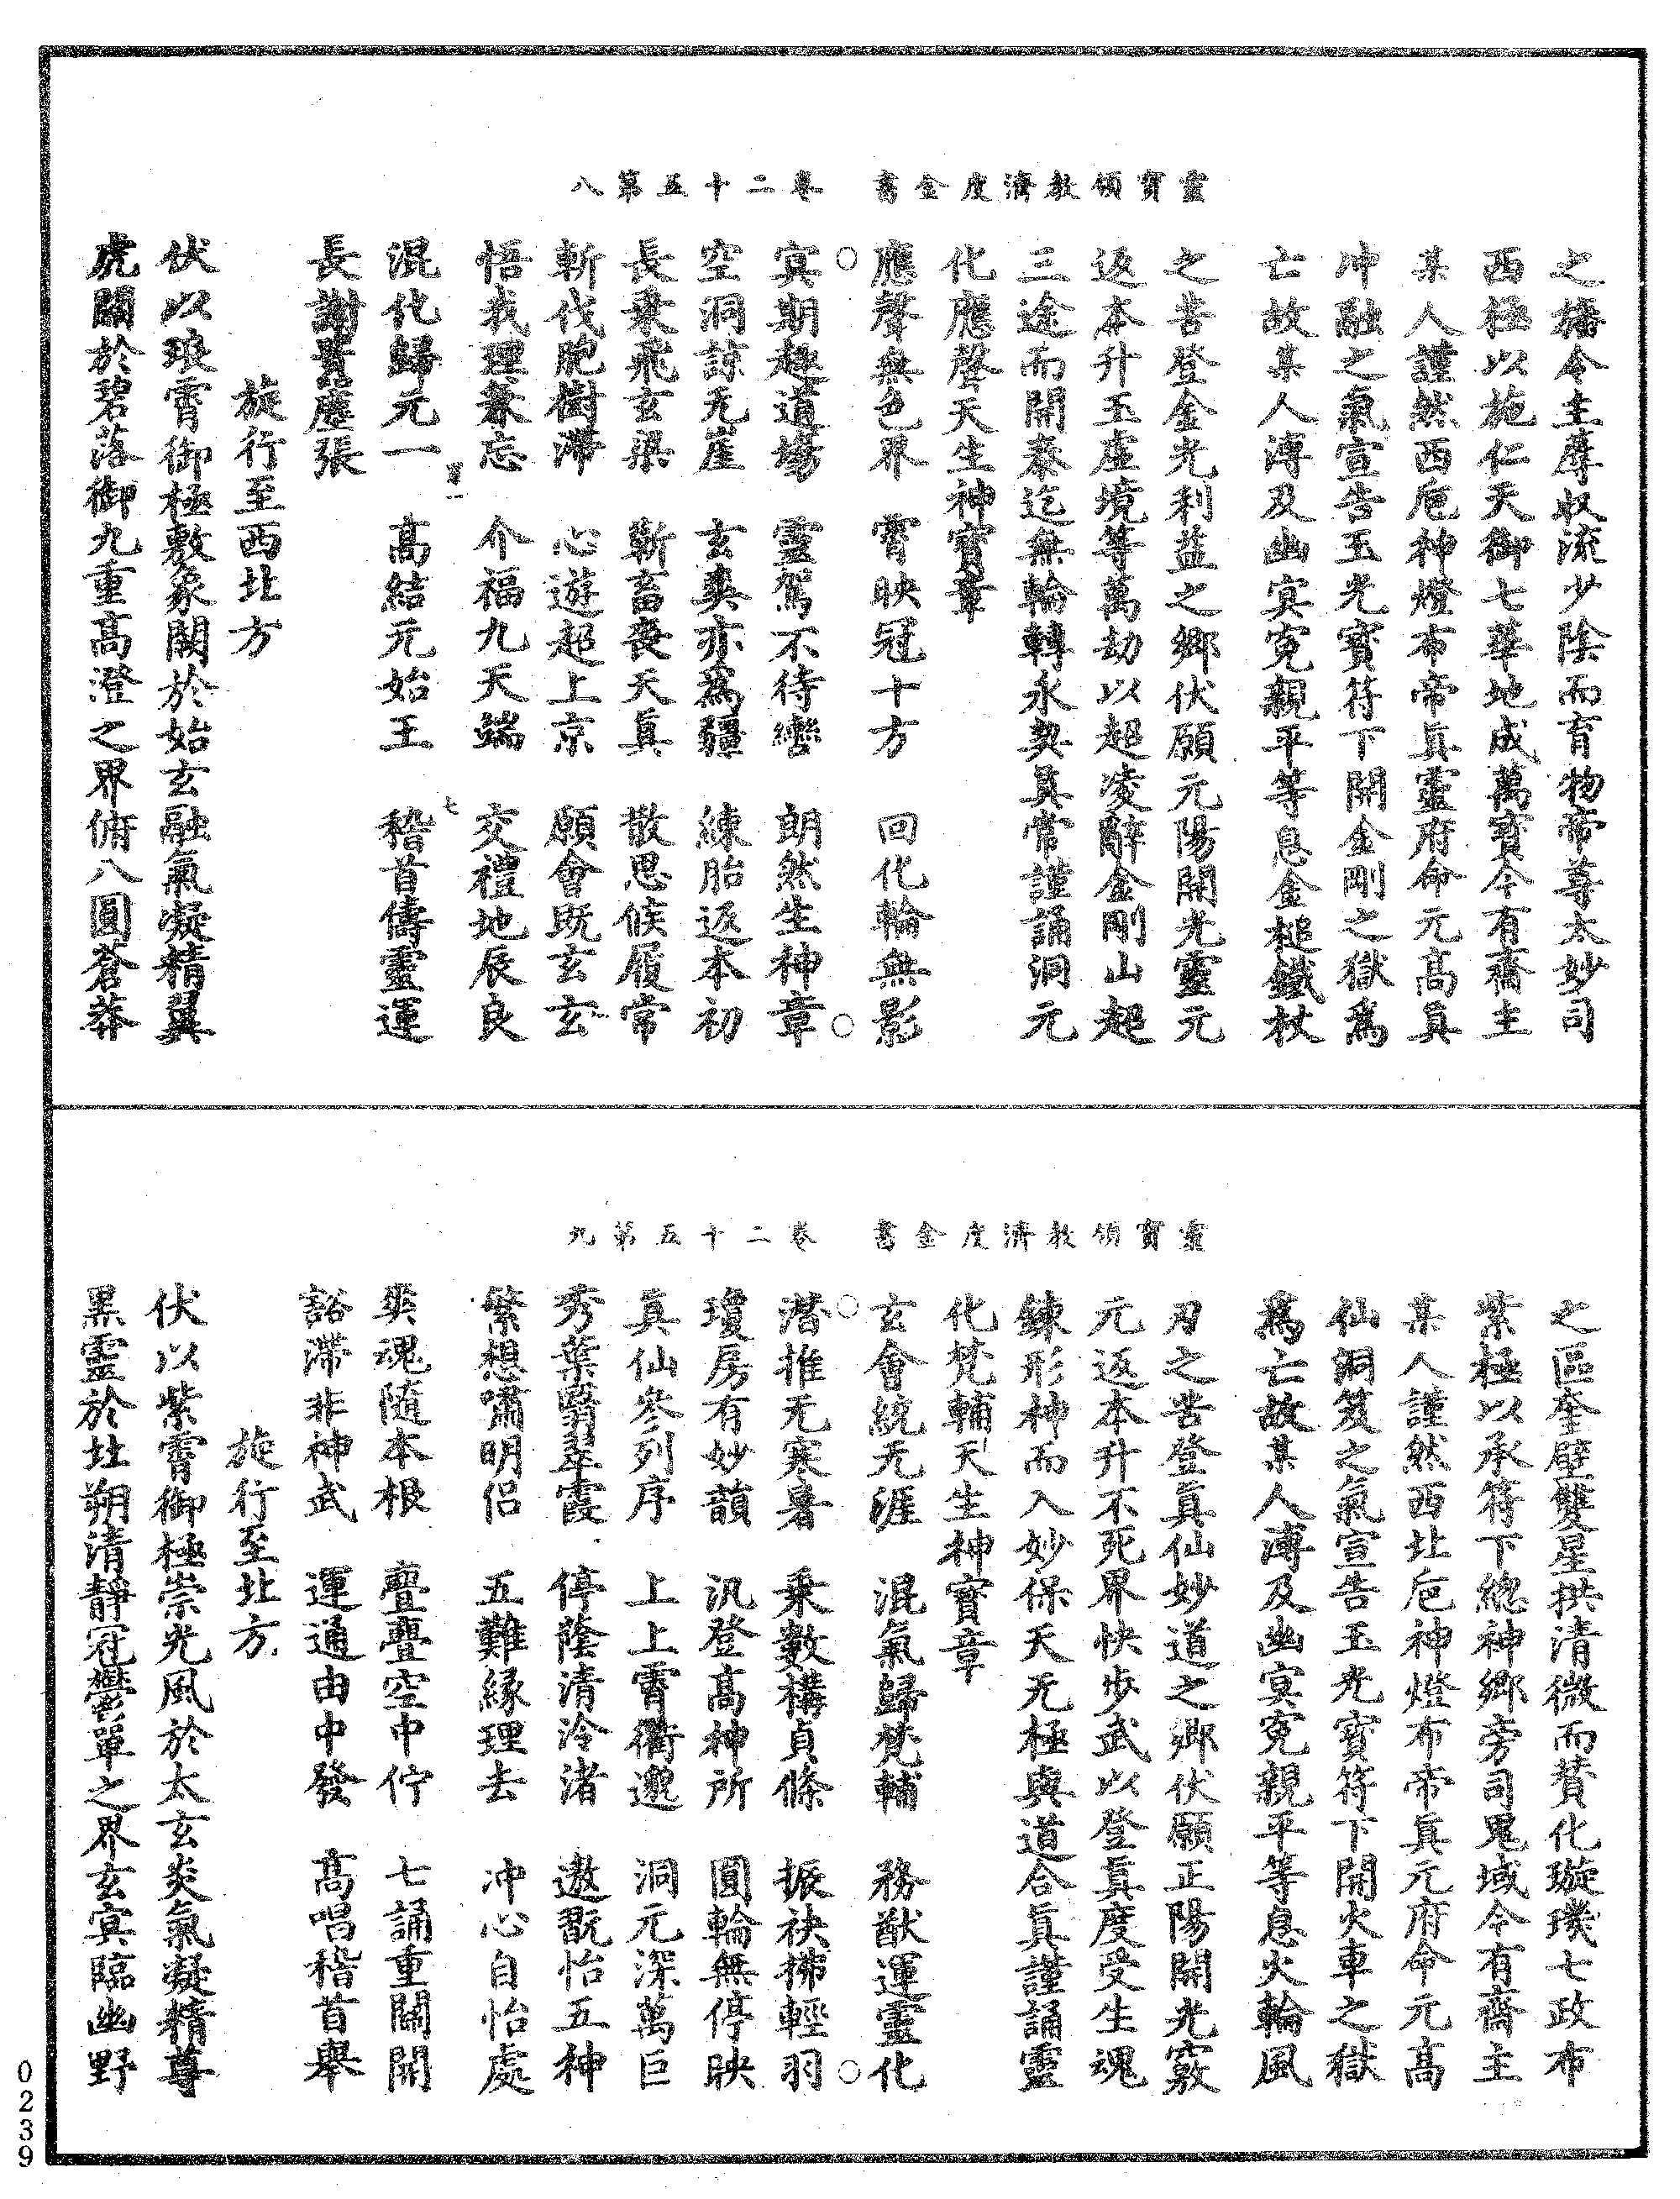 靈寶領教濟度金書　卷二十五第八
之播令主蓐収流少陰而育物帝尊太妙司
西極以施仁天御七華地成萬寶今有齋主
某人謹然西戹神燈布帝眞靈府命元髙眞
冲融之氣宣告玉光寶符下開金剛之獄爲
亡故某人溥及幽冥寃親平等息金槌鐵杖
之苦登金光利益之郷伏願元陽開光靈元
返本升玉虛境等萬劫以起凌辭金剛山超
三途而開泰迄無輪轉永契眞常謹誦洞元
化應聲天生神寳章
應聲無色界　霄映冠十方　回化輪無影
○冥期趣道場　靈駕不待轡　朗然生神章○
空洞諒无崖　玄爽亦爲疆　練胎返本初
長乗飛玄梁　蘄畜喪天眞　散思候履常
斬伐胞樹滯　心遊超上京　願會既玄玄
悟我理兼忘　介福九天端　交禮地辰良
混化歸元一　髙結元始王　稽首儔靈運
長謝胥塵張
旋行至西北方
伏以琅霄御極敷象闕於始玄融氣凝精翼
虎關於碧落御九重髙澄之界俯八圓蒼莽
靈寶領教濟度金書　卷二十五第九
之區奎壁雙星拱清微而賛化璇璣七政布
紫極以承符下總神郷旁司鬼域今有齋主
某人謹然西北戹神燈布帝眞元府命元髙
仙洞笈之氣宣告玉光寶符下開火車之獄
爲亡故某人溥及幽冥寃親平等息火輪風
刃之苦登眞仙妙道之郷伏願正陽開光竅
元返本升不死界快步武以登眞度受生魂
鍊形神而入妙保天无極與道合眞謹誦靈
化梵輔天生神寳章
玄會統无涯　混氣歸梵輔　務猷運靈化
○潛推无寒暑　乗數構貞條　振袂拂輕羽○
瓊房有妙韻　汎登髙神所　圓輪無停映
眞仙參列序　上上霄衢邈　洞元深萬巨
秀葉翳翠霞　停蔭清泠渚　遨翫怡五神
繁想嘯明侣　五難緣理去　冲心自怡處
爽魂随本根　亹亹空中佇　七誦重關開
豁滯非神武　運通由中發　髙唱稽首舉
旋行至北方
伏以紫霄御極崇光風於太玄炎氣凝精尊
黒靈於北朔清靜冠鬱單之界玄冥臨幽野
0239